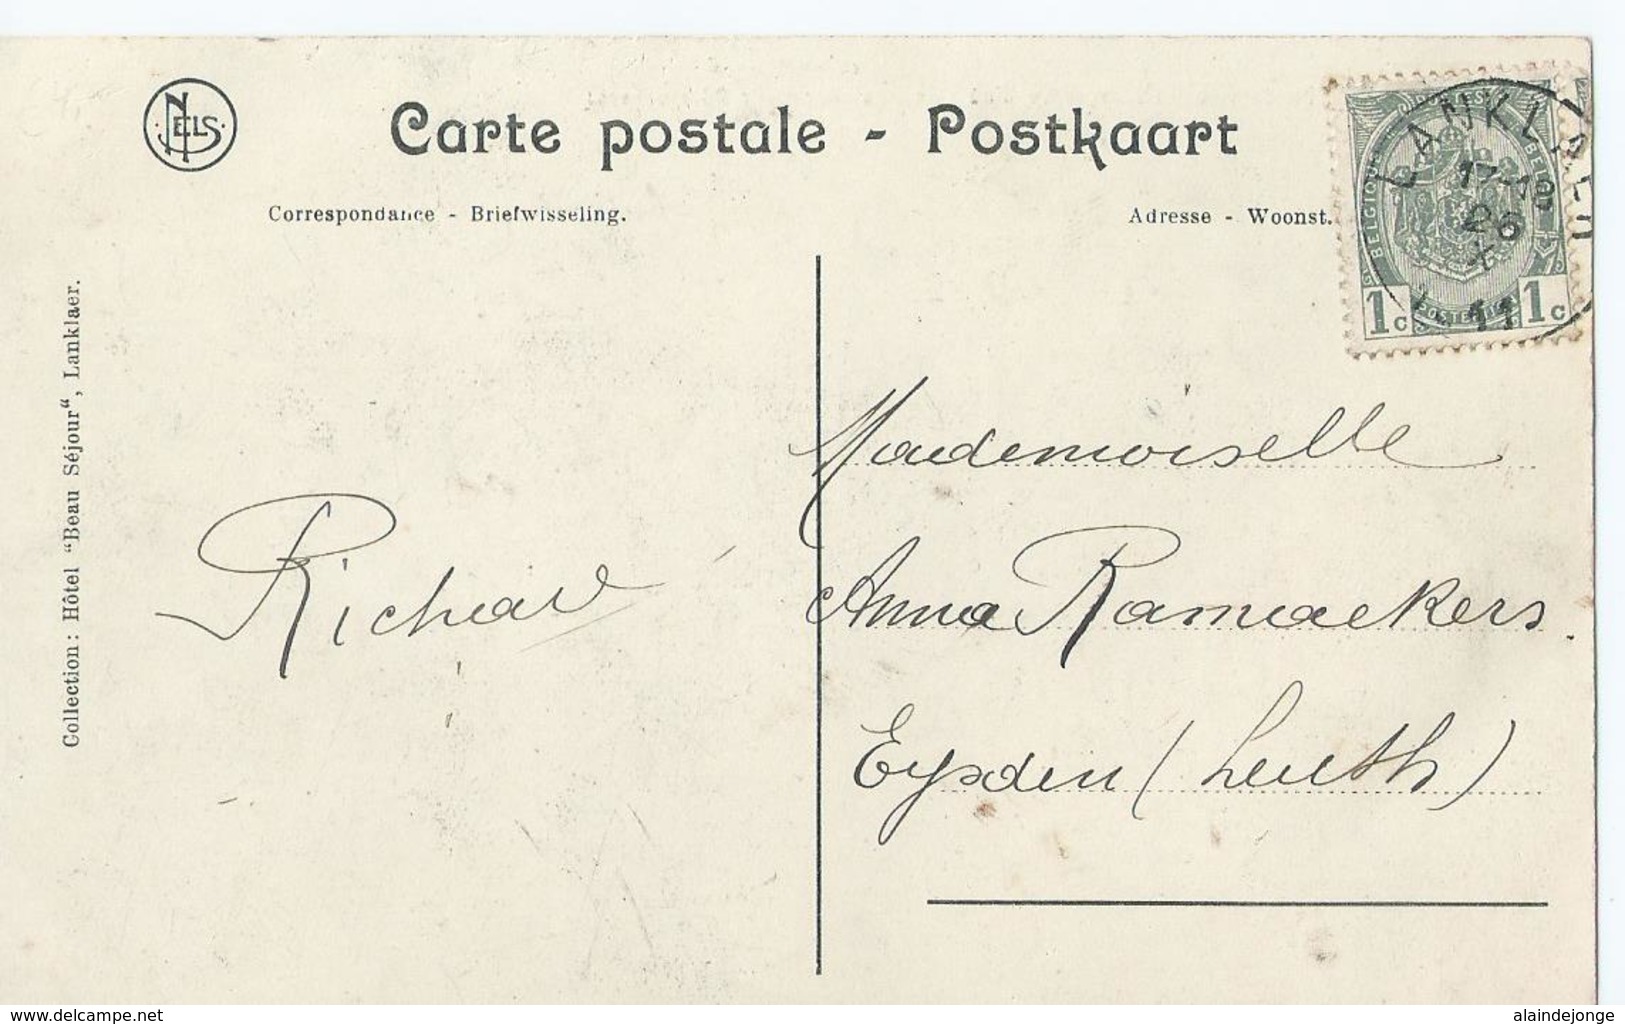 NELS
Carte postale - Postkaart
Correspondance - Briefwisseling.
Adresse - Woonst.
LANKLAER
17-18
26
X
11
BELGIQUE
BELGIË
POSTERIJEN
1c 1c
Collection: Hôtel "Beau Séjour", Lanklaer.
Mademoiselle
Richard
Anna Ramaekers.
Eysden (Leuth)
www.delcampe.net
alaindejonge